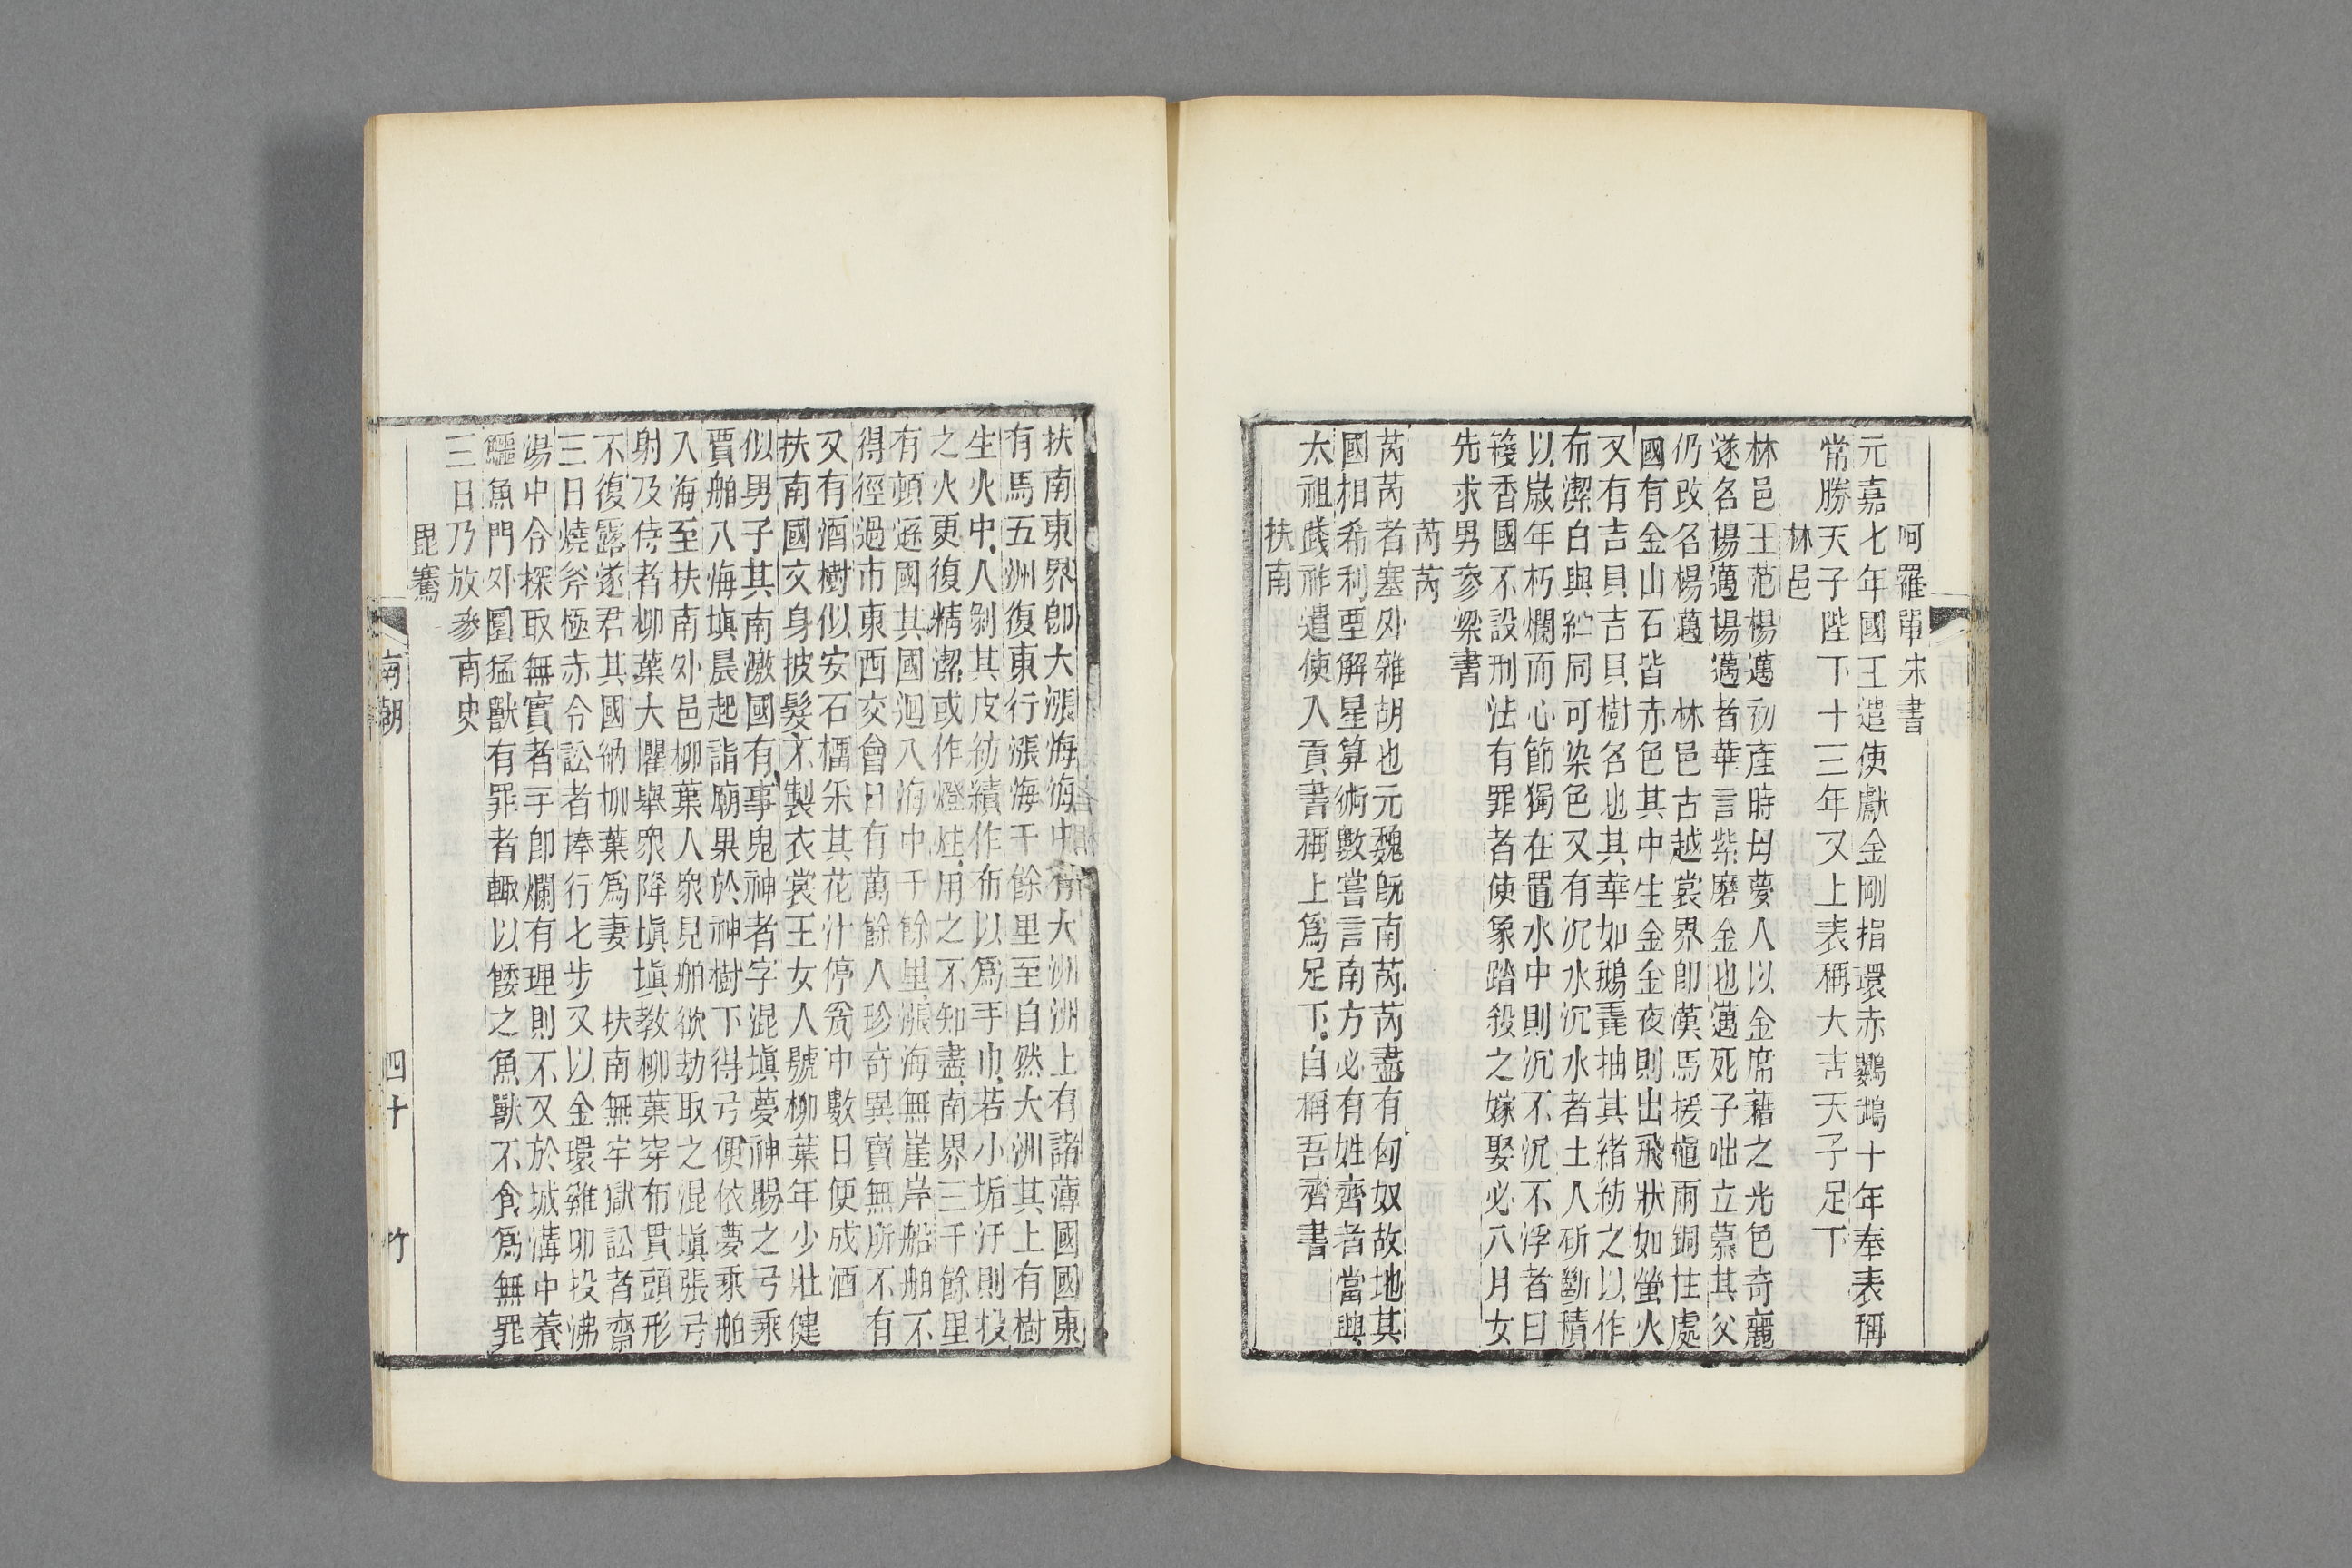 呵羅單宋書
元嘉七年國王遣使獻金剛指環赤鸚鵡十年奉表稱
常勝天子陛下十三年又上表稱大吉天子足下
林邑
林邑王范楊邁初產時母夢人以金席藉之光色奇麗
遂名楊邁楊邁者華言紫磨金也邁死子咄立慕其父
仍改名楊邁　林邑古越裳界卽漢馬援植兩銅柱處
國有金山石皆赤色其中生金金夜則出飛狀如螢火
又有吉貝吉貝樹名也其華如鵝毳抽其緒紡之以作
布潔白與紵同可染色又有沉水沉水者土人斫斷積
以歲年朽爛而心節獨在置水中則沉不沉不浮者曰
䉜香國不設刑法有罪者使象踏殺之嫁娶必八月女
先求男叅梁書
芮芮
芮芮者塞外雜胡也元魏旣南芮芮盡有匈奴故地其
國相希利垔解星算術數嘗言南方必有姓齊者當興
太祖踐祚遣使入貢書稱上爲足下自稱吾齊書
扶南
扶南東界卽大漲海海中有大洲洲上有諸薄國國東
有馬五洲復東行漲海千餘里至自然大洲其上有樹
生火中人剝其皮紡績作布以爲手巾若小垢汙則投
之火更復精潔或作燈炷用之不知盡南界三千餘里
有頓遜國其國迴入海中千餘里漲海無崖岸船舶不
得徑過市東西交會日有萬餘人珍奇異寶無所不有
又有酒樹似安石榴采其花汁停瓮中數日便成酒
扶南國文身被髮不製衣裳王女人號柳葉年少壯健
似男子其南激國有事鬼神者字混塡夢神賜之弓乘
賈舶入海塡晨起詣廟果於神樹下得弓便依夢乘舶
入海至扶南外邑柳葉人衆見舶欲劫取之混塡張弓
射及侍者柳葉大懼舉衆降塡塡教柳葉穿布貫頭形
不復露遂君其國納柳葉爲妻　扶南無牢獄訟者齋
三日燒斧極赤令訟者捧行七步又以金環雞卵投沸
湯中令探取無實者手卽爛有理則不又於城溝中養
鱷魚門外圈猛獸有罪者輒以餧之魚獸不食爲無罪
三日乃放叅南史
毘騫
南朝
四十
竹